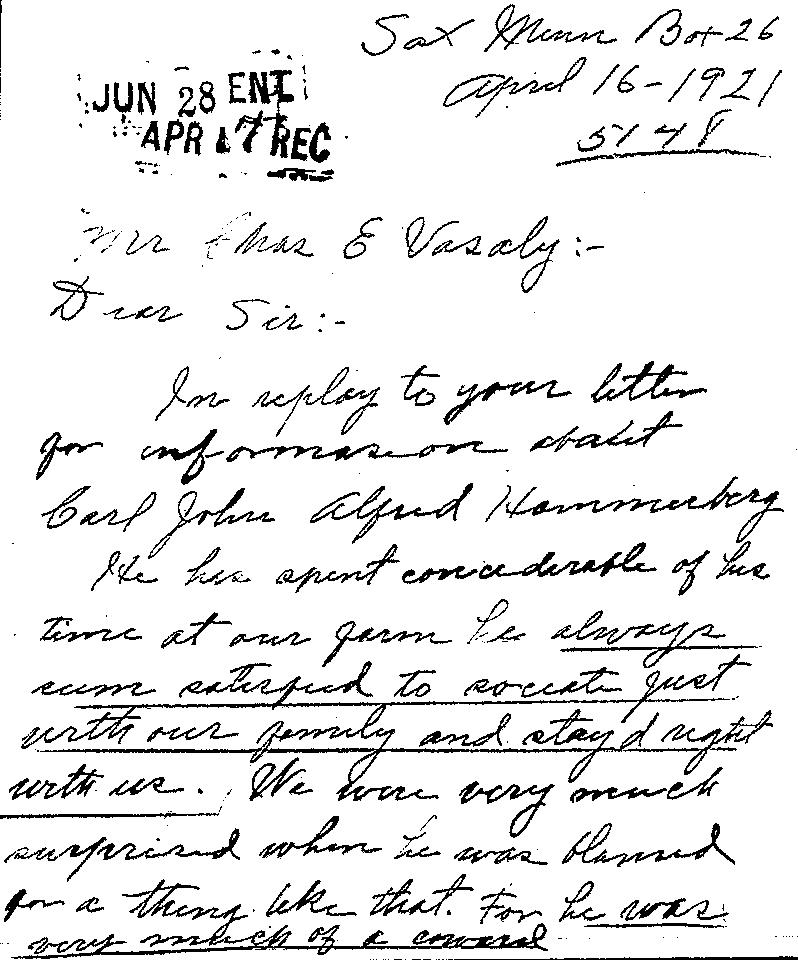 Sax Minn Box 26
April 16-1921
5148
JUN 28 ENT
APR 17 REC
Mr Chas E Vasaly:-
Dear Sir:-
In replay to your letter
for informasion about
Carl John Alfred Hammerberg
He has spent concederable of his
time at our farm he always
seem satisfied to sociate just
with our family and stay'd right
with us. We were very much
surprised when he was blamed
for a thing like that. For he was
very much of a coward